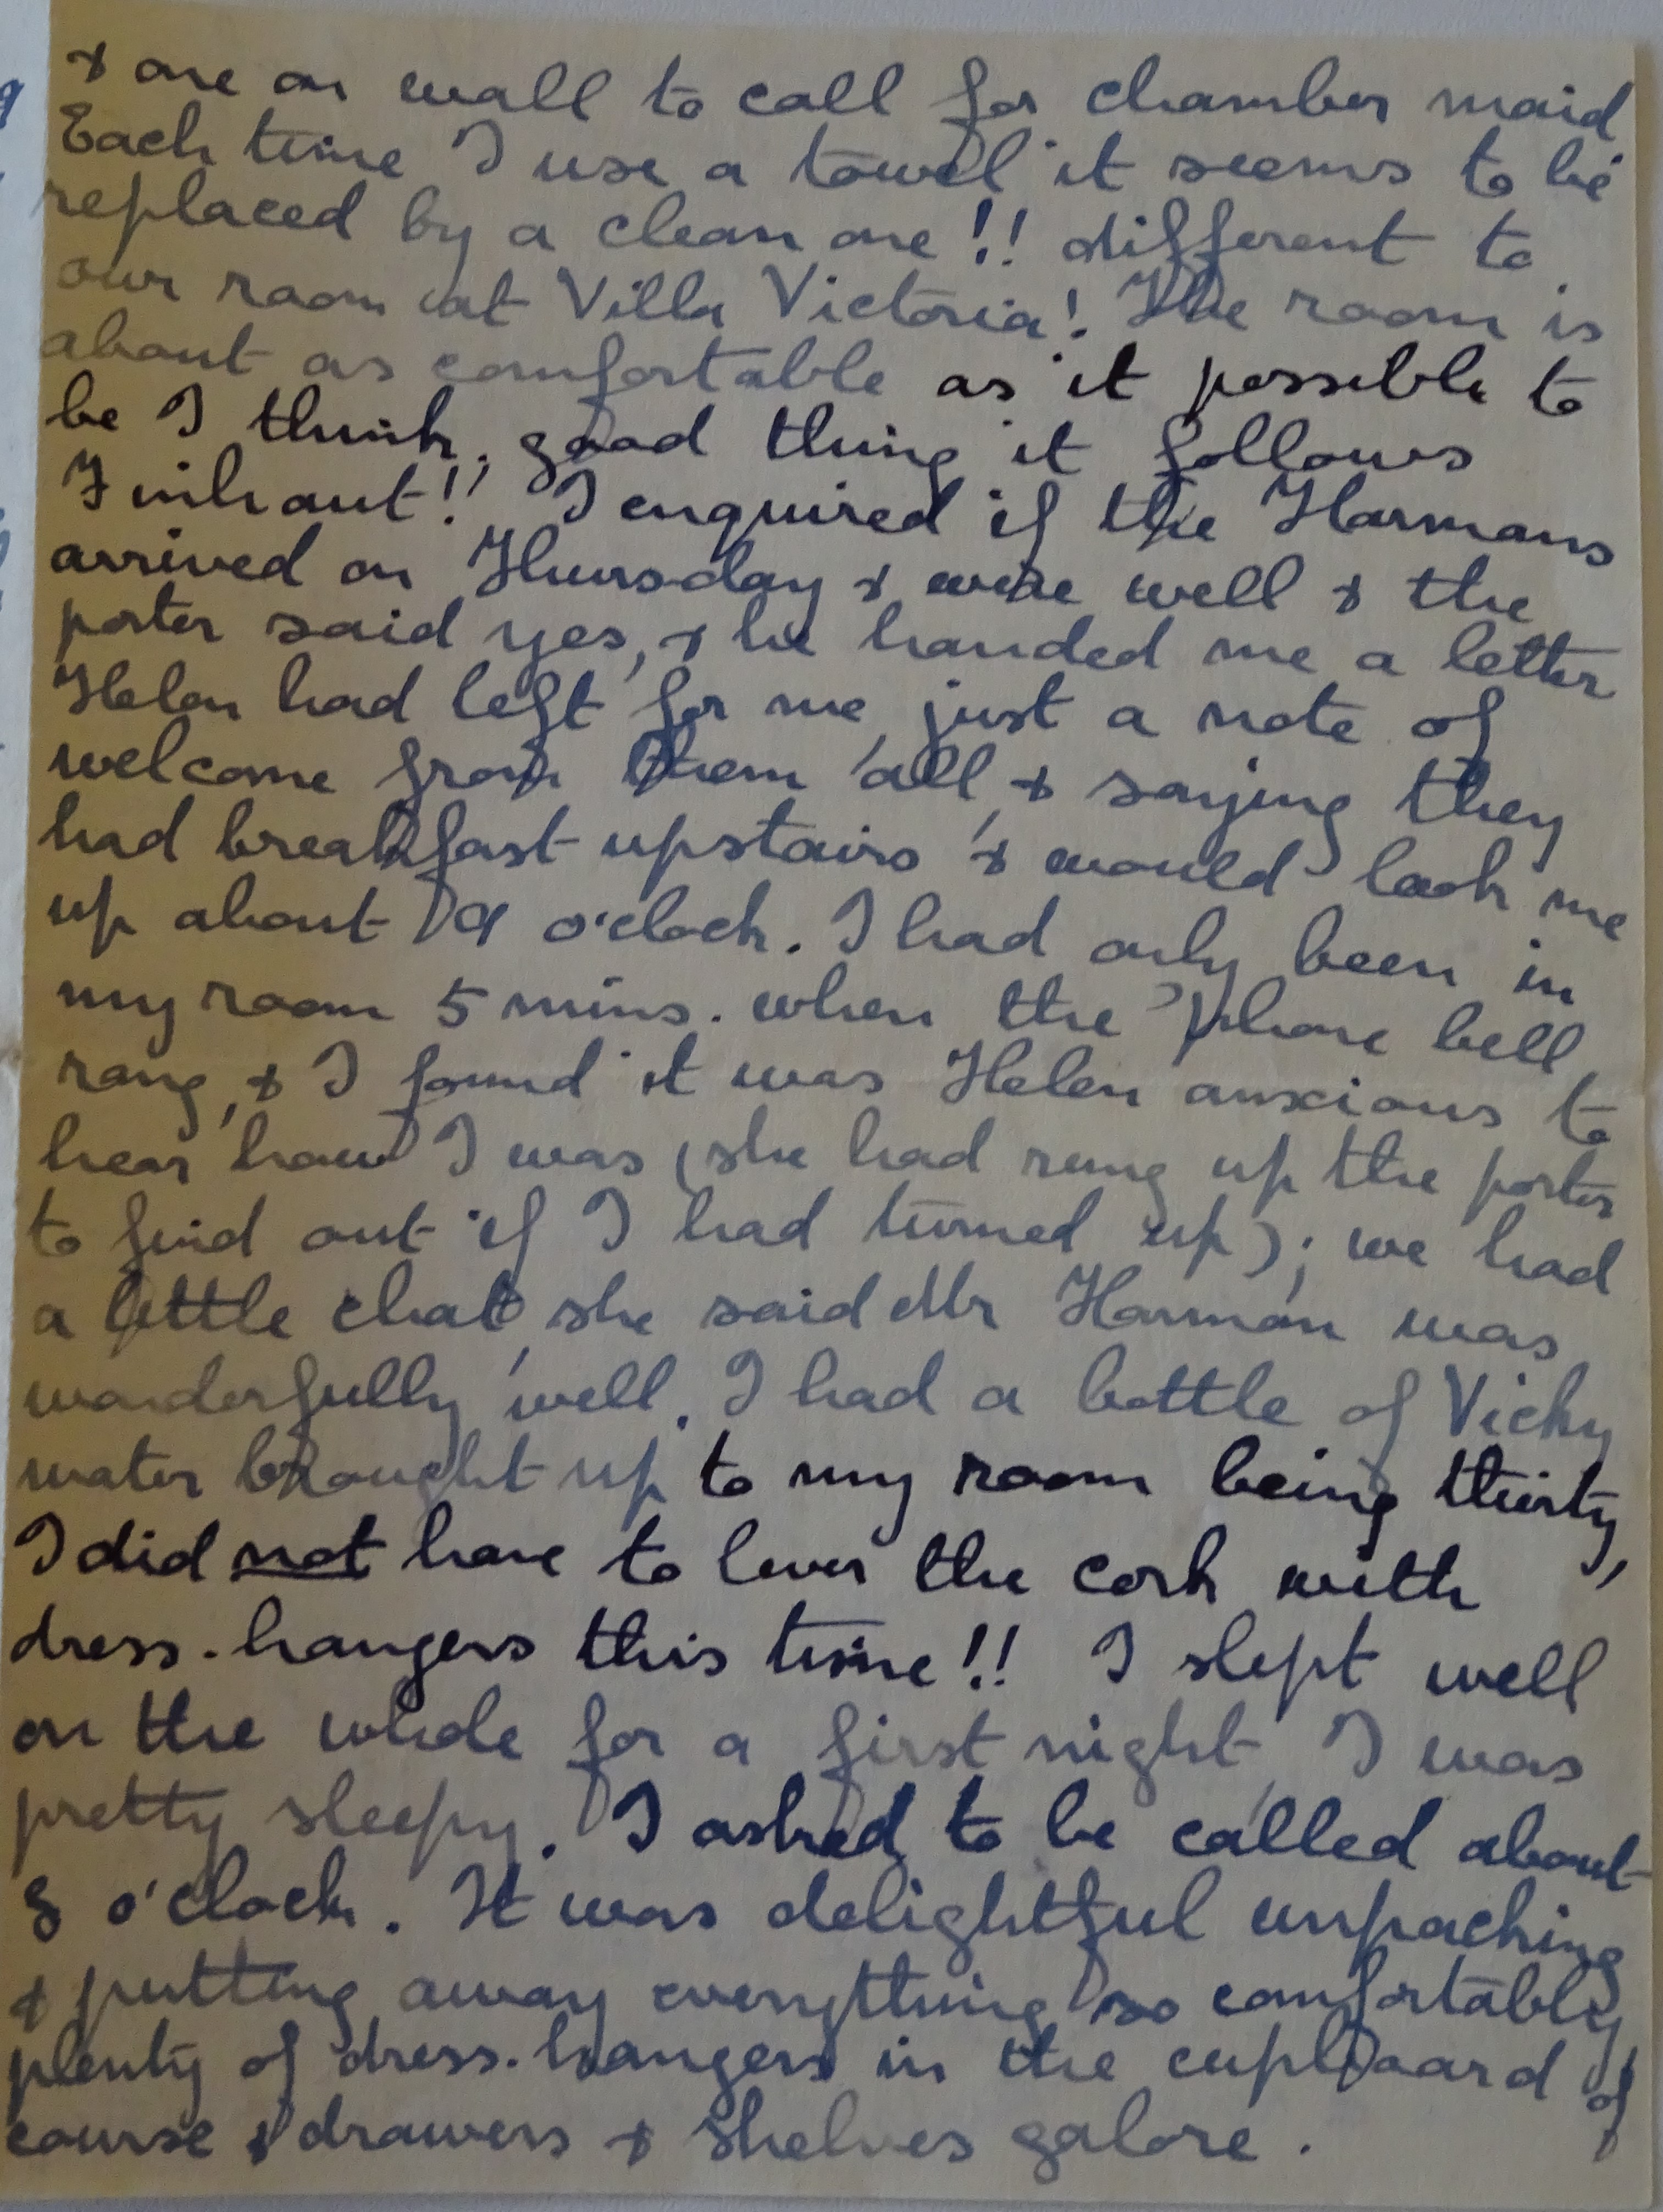 & one on wall to call for chamber maid
Each time I use a towel it seems to be
replaced by a clean one!! different to
our room at Villa Victoria! The room is
about as comfortable as it possible to
be I think. good thing it follows
Finhaut!! I enquired if the Harmans
arrived on Thursday & were well & the
porter said yes, & he handed me a letter
Helen had left for me, just a note of
welcome from them all, & saying they
had breakfast upstairs, & would look me
up about 9 o'clock. I had only been in
my room 5 mins. when the 'phone bell
rang, & I found it was Helen anxious to
hear how I was (she had rung up the porter
to find out if I had turned up); we had
a little chat, she said Mr Harman was
wonderfully well. I had a bottle of Vichy
water brought up to my room being thirsty,
I did not have to lever the cork with
dress-hangers this time!! I slept well
on the whole for a first night, I was
pretty sleepy. I asked to be called about
8 o'clock. It was delightful unpacking
& putting away everything so comfortably,
plenty of dress-hangers in the cupboard of
course & drawers & shelves galore.